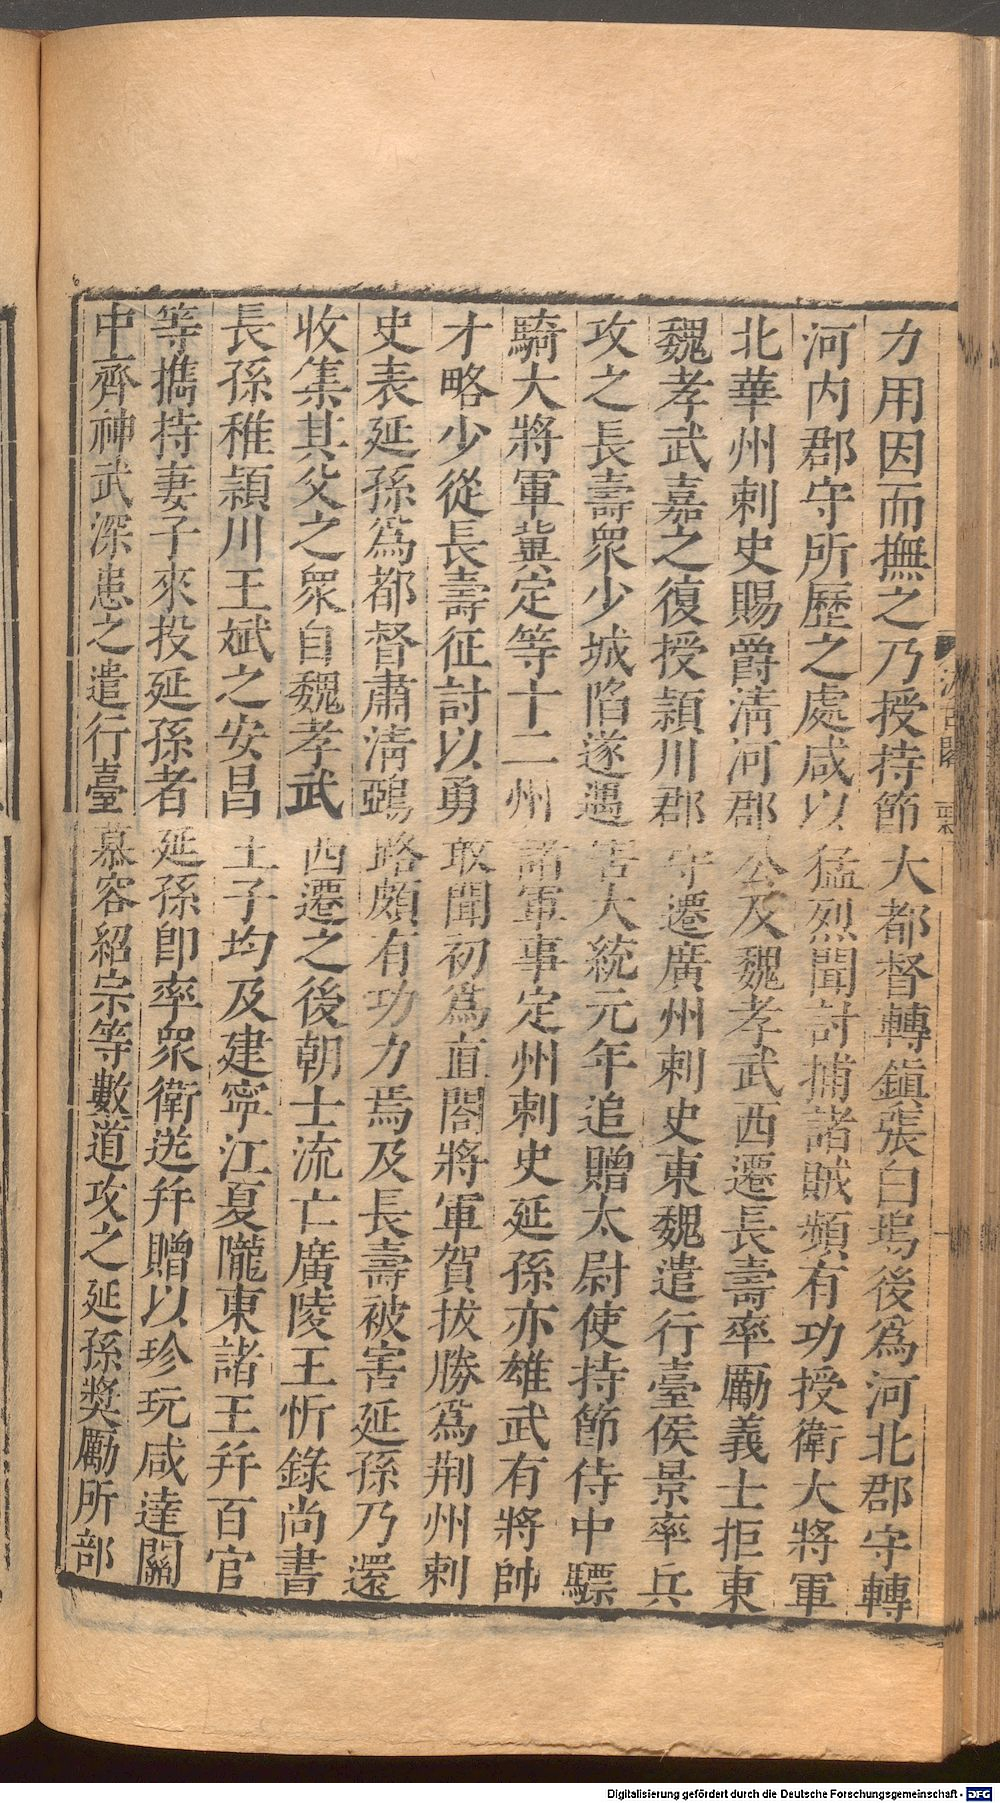 力用因而撫之乃授持節大都督轉鎮張白塢後爲河北郡守轉
河内郡守所歷之處咸以猛烈聞討捕諸賊頻有功授衛大將軍
北華州刺史賜爵清河郡公及魏孝武西遷長壽率勵義士拒東
魏孝武嘉之復授潁川郡守遷廣州刺史東魏遣行臺侯景率兵
攻之長壽眾少城陷遂遇害大統元年追贈太尉使持節侍中驃
騎大將軍冀定等十二州諸軍事定州刺史延孫亦雄武有將帥
才略少從長壽征討以勇敢聞初爲直閤將軍賀拔勝爲荆州刺
史表延孫爲都督肅清鵶路頗有功力焉及長壽被害延孫乃還
收集其父之眾自魏孝武西遷之後朝士流亡廣陵王忻錄尚書
長孫稚潁川王斌之安昌王子均及建寧江夏隴東諸王幷百官
等攜持妻子來投延孫者延孫即率眾衛送幷贈以珍玩咸達關
中齊神武深患之遣行臺慕容紹宗等數道攻之延孫奬勵所部
Digitalisierung gefördert durch die Deutsche Forschungsgemeinschaft - DFG